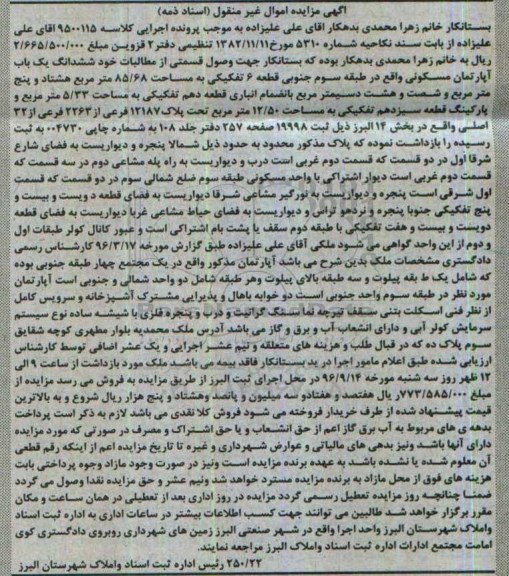 آگهی مزایده اموال غیر منقول (اسناد ذمه)
بستانکار خانم زهرا محمدی بدهکار آقای علی علیزاده به موجب پرونده اجرایی کلاسه ۹۵۰۰۱۱۵ آقای علی
علیزاده از بابت سند نکاحیه شماره ۵۳۱۰ مورخ ۱۳۸۲/۱۱/۱۱ تنظیمی دفتر ۲ قزوین مبلغ ۲/۶۶۵/۵۰۰/۰۰۰
ریال به خانم زهرا محمدی بدهکار بوده که بستانکار جهت وصول قسمتی از مطالبات خود ششدانگ یک باب
آپارتمان مسکونی واقع در طبقه سوم جنوبی قطعه ۶ تفکیکی به مساحت ۸۵/۶۸ متر مربع هشتاد و پنج
متر مربع و شصت و هشت دسیمتر مربع بانضمام انباری قطعه دهم تفکیکی به مساحت ۵/۳۳ متر مربع و
پارکینگ قطعه سیزدهم تفکیکی به مساحت ۱۲/۵۰ متر مربع تحت پلاک ۱۲۱۸۷ فرعی از ۲۲۶۳ فرعی از ۳۲
اصلی واقع در بخش ۱۴ البرز ذیل ثبت ۱۹۹۹۸ صفحه ۲۵۷ دفتر جلد ۱۰۸ به شماره چاپی ۰۰۴۷۳۰ به ثبت
رسیده را بازداشت نموده که پلاک مذکور محدود به حدود ذیل شمالا پنجره و دیواریست به فضای شارع
شرقا اول در دو قسمت که قسمت دوم غربی است درب و دیواریست به راه پله مشاعی دوم در سه قسمت که
قسمت دوم غربی است دیوار اشتراکی با واحد مسکونی طبقه سوم ضلع شمالی سوم در دو قسمت که قسمت
اول شرقی است پنجره و دیواریست به نورگیر مشاعی شرقا دیواریست به فضای قطعه دویست و بیست و
پنج تفکیکی جنوبا پنجره و نردهو تراس و دیواریست به فضای حیاط مشاعی غربا دیواریست به فضای قطعه
دویست و بیست و هفت تفکیکی با طبقه دوم سقف با پشت بام اشتراکی است و عبور کانال کولر طبقات اول
و دوم از این واحد گواهی می شود ملکی آقای علی علیزاده طبق گزارش مورخه ۹۶/۳/۱۷ کارشناس رسمی
دادگستری مشخصات ملک بدین شرح می باشد آپارتمان مذکور واقع در یک مجتمع چهار طبقه جنوبی بوده
که شامل یک ط بقه پیلوت و سه طبقه بالای پیلوت وهر طبقه شامل دو واحد شمالی و جنوبی است آپارتمان
مورد نظر در طبقه سوم واحد جنوبی است دو خوابه باهال و پذیرایی مشترک آشپزخانه و سرویس کامل
از نظر فنی اسکلت بتنی سقف تیرچه نما سنگ گرانیت و درب و پنجره فلزی با شیشه ساده نوع سیستم
سرمایش کولر آبی و دارای انشعاب آب و برق و گاز می باشد آدرس ملک محمدیه بلوار مطهری کوچه شقایق
سوم پلاک ده که در قبال طلب و هزینه های متعلقه و نیم عشر اجرایی و یک عشر اضافی توسط کارشناس
ارزیابی شده طبق اعلام مامور اجرا در ید بستانکار فاقد بیمه می باشد ملک مورد بازداشت از ساعت ۹ الی
۱۲ ظهر روز سه شنبه مورخه ۹۶/۹/۱۴ در محل اجرای ثبت البرز از طریق مزایده به فروش می رسد مزایده از
مبلغ ۷۷۳/۵۸۵/۰۰۰ ریال هفتصد و هفتادو سه میلیون و پانصد وهشتاد و پنج هزار ریال شروع و به بالاترین
قیمت پیشنهاد شده از طرف خریدار فروخته می شود فروش کلا نقدی می باشد لازم به ذکر است پرداخت
بدهی های مربوط به آب برق گاز اعم از حق انشعاب و یا حق اشتراک و مصرف در صورتی که مورد مزایده
دارای آنها باشد ونیز بدهی های مالیاتی و عوارض شهرداری و غیره تا تاریخ مزایده اعم از اینکه رقم قطعی
آن معلوم شده یا نشده باشد به عهده برنده مزایده است ونیز در صورت وجود مازاد وجوه پرداختی بابت
هزینه های فوق از محل مازاد به برنده مزایده مسترد خواهد شد ونیم عشر و حق مزایده نقدا وصول می گردد
ضمنا چنانچه روز مزایده تعطیل رسمی گردد مزایده در روز اداری بعد از تعطیلی در همان ساعت و مکان
مقرر برگزار خواهد شد طالبین می توانند جهت کسب اطلاعات بیشتر در ساعات اداری به اداره ثبت اسناد
واملاک شهرستان البرز واحد اجرا واقع در شهر صنعتی البرز زمین های شهرداری روبروی دادگستری کوی
امامت مجتمع ادارات اداره ثبت اسناد واملاک البرز مراجعه نمایند.
۲۵۰/۲۲ رئیس اداره ثبت اسناد واملاک شهرستان البرز